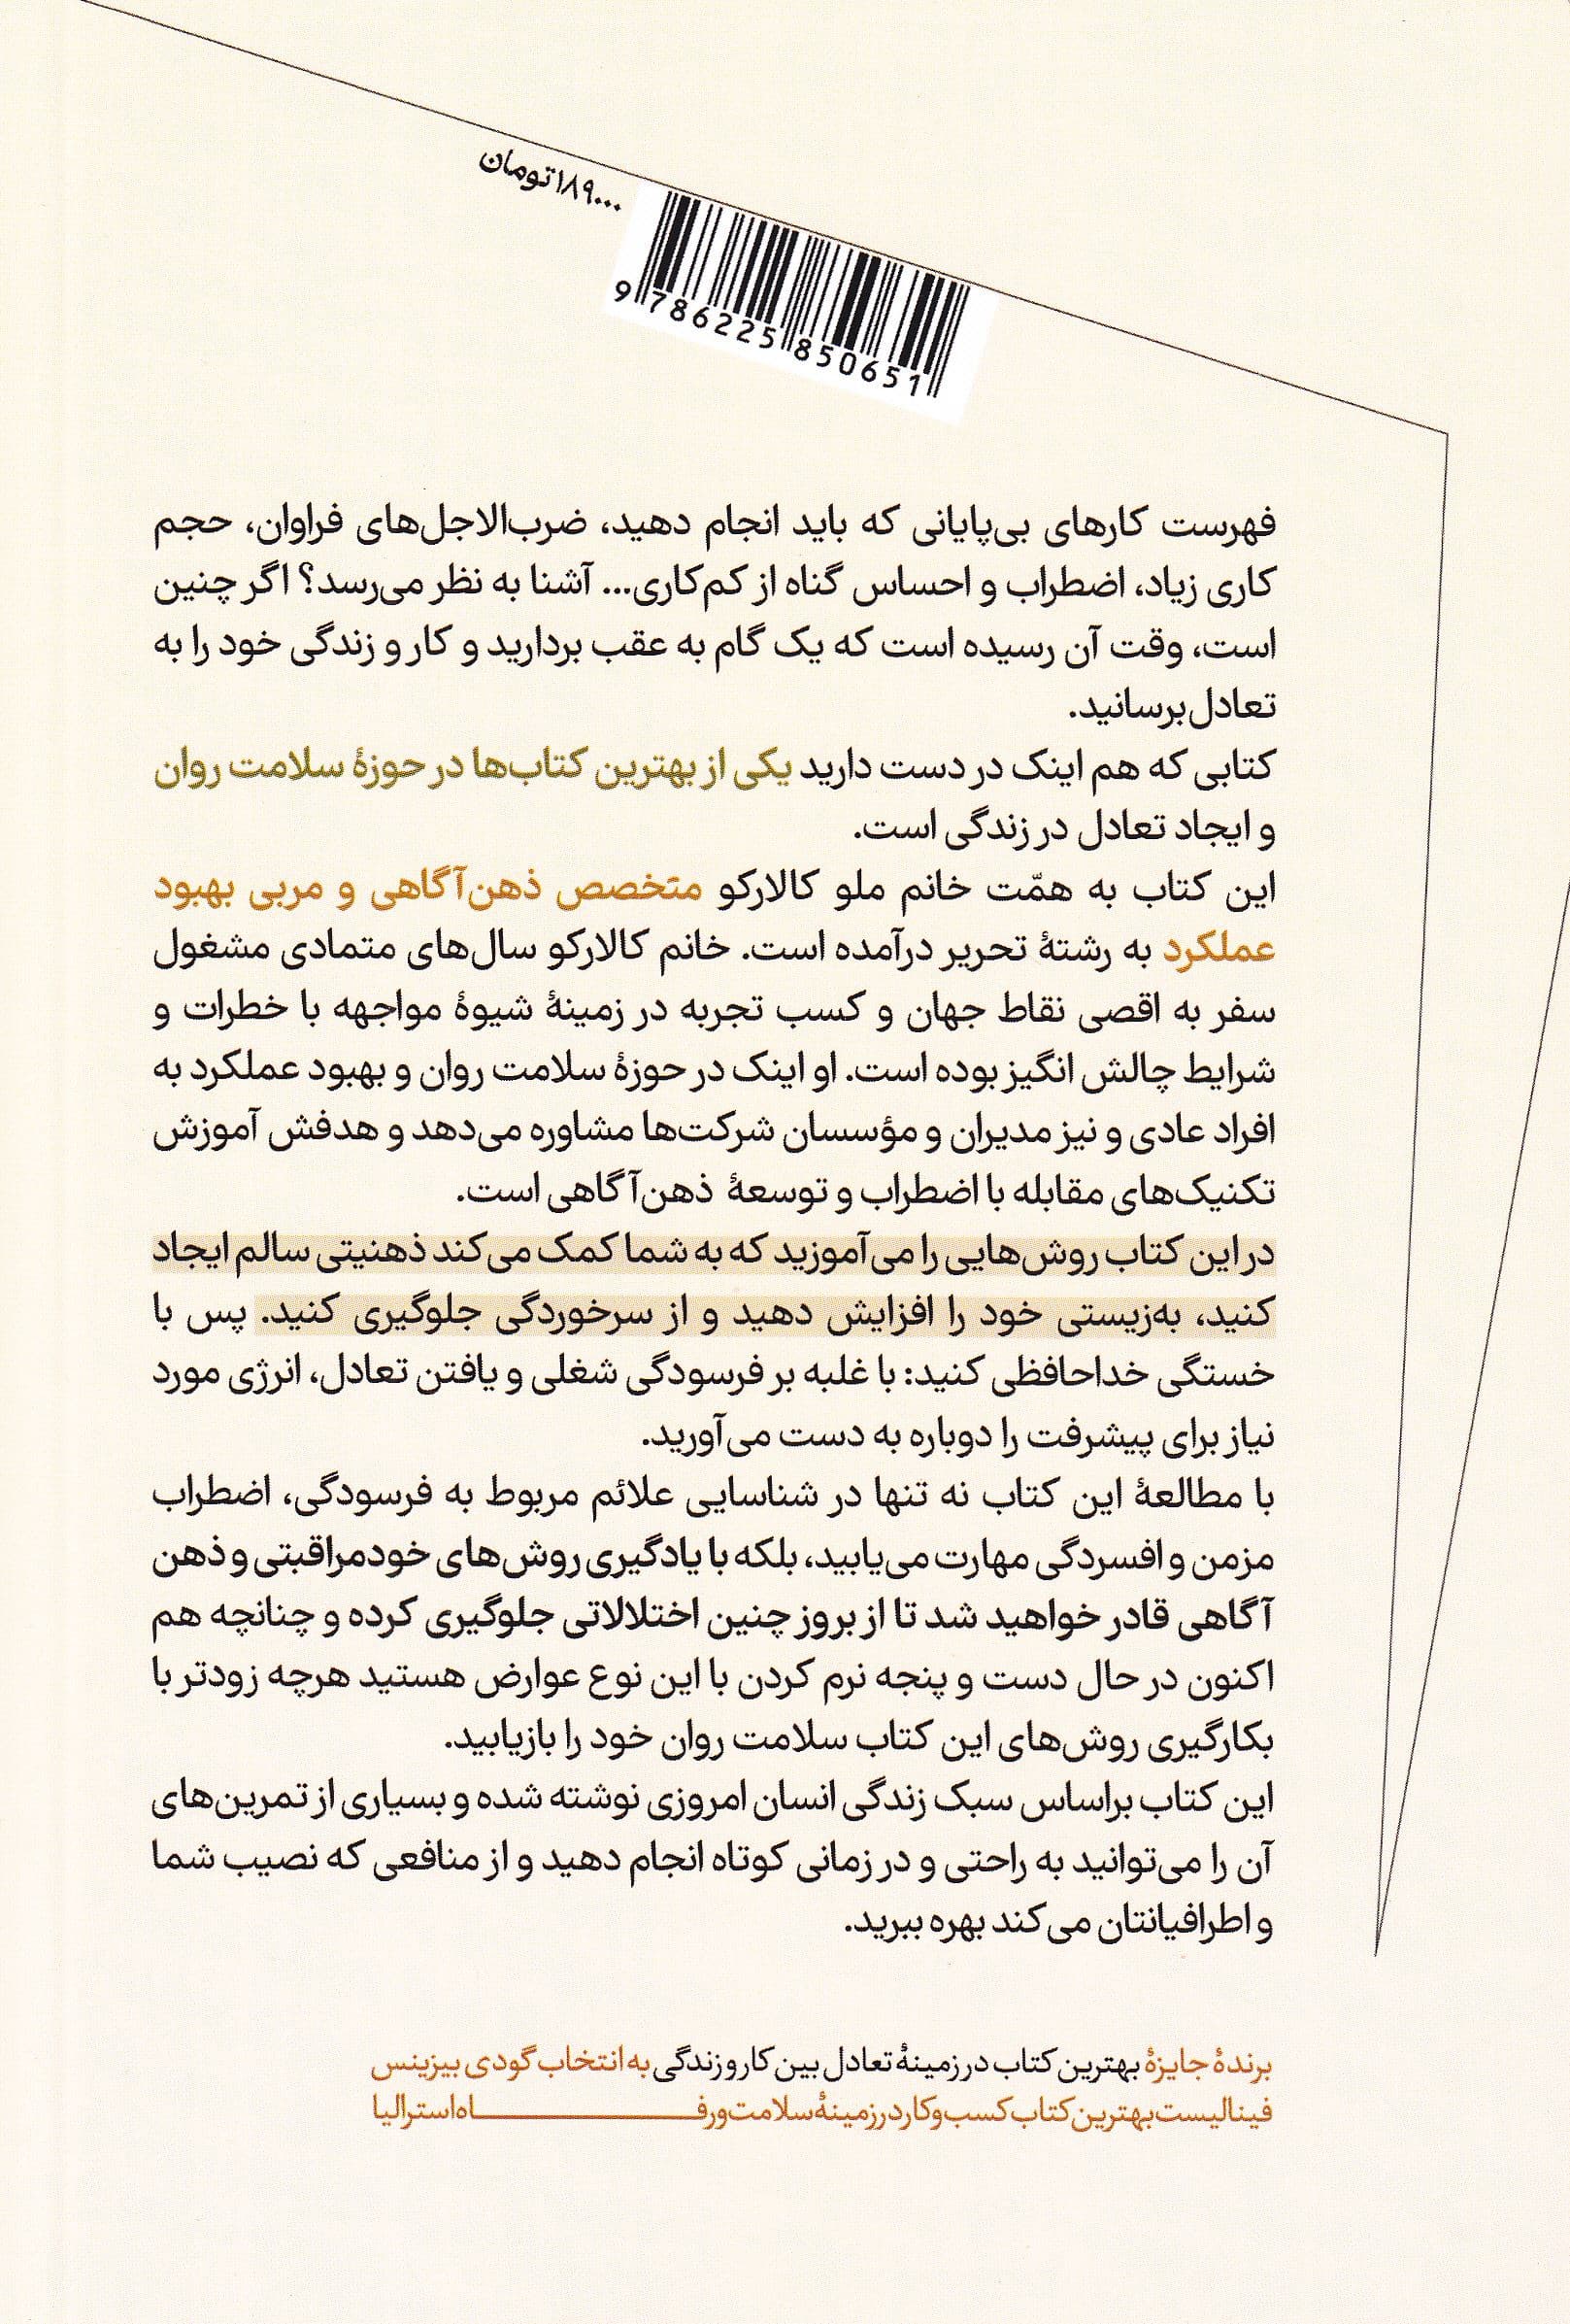 ۱۸۹۰۰۰تومان
9 786225 850651
فهرست کارهای بی‌پایانی که باید انجام دهید، ضرب‌الاجل‌های فراوان، حجم
کاری زیاد، اضطراب و احساس گناه از کم‌کاری... آشنا به نظر می‌رسد؟ اگر چنین
است، وقت آن رسیده است که یک گام به عقب بردارید و کار و زندگی خود را به
تعادل‌برسانید.
کتابی که هم اینک در دست دارید یکی از بهترین کتاب‌ها در حوزهٔ سلامت روان
و ایجاد تعادل در زندگی است.
این کتاب به همّت خانم ملو کالارکو متخصص ذهن‌آگاهی و مربی بهبود
عملکرد به رشتهٔ تحریر درآمده است. خانم کالارکو سال‌های متمادی مشغول
سفر به اقصی نقاط جهان و کسب تجربه در زمینهٔ شیوهٔ مواجهه با خطرات و
شرایط چالش انگیز بوده است. او اینک در حوزهٔ سلامت روان و بهبود عملکرد به
افراد عادی و نیز مدیران و مؤسسان شرکت‌ها مشاوره می‌دهد و هدفش آموزش
تکنیک‌های مقابله با اضطراب و توسعهٔ ذهن‌آگاهی است.
در این کتاب روش‌هایی را می‌آموزید که به شما کمک می‌کند ذهنیتی سالم ایجاد
کنید، به‌زیستی خود را افزایش دهید و از سرخوردگی جلوگیری کنید. پس با
خستگی خداحافظی کنید: با غلبه بر فرسودگی شغلی و یافتن تعادل، انرژی مورد
نیاز برای پیشرفت را دوباره به دست می‌آورید.
با مطالعهٔ این کتاب نه تنها در شناسایی علائم مربوط به فرسودگی، اضطراب
مزمن و افسردگی مهارت می‌یابید، بلکه با یادگیری روش‌های خودمراقبتی و ذهن
آگاهی قادر خواهید شد تا از بروز چنین اختلالاتی جلوگیری کرده و چنانچه هم
اکنون در حال دست و پنجه نرم کردن با این نوع عوارض هستید هرچه زودتر با
بکارگیری روش‌های این کتاب سلامت روان خود را بازیابید.
این کتاب براساس سبک زندگی انسان امروزی نوشته شده و بسیاری از تمرین‌های
آن را می‌توانید به راحتی و در زمانی کوتاه انجام دهید و از منافعی که نصیب شما
و اطرافیانتان می‌کند بهره ببرید.
برندهٔ جایزهٔ بهترین کتاب در زمینهٔ تعادل بین کار و زندگی به انتخاب گودی بیزینس
فینالیست بهترین کتاب کسب‌وکار در زمینهٔ سلامت و رفـــــــــاه استرالیا